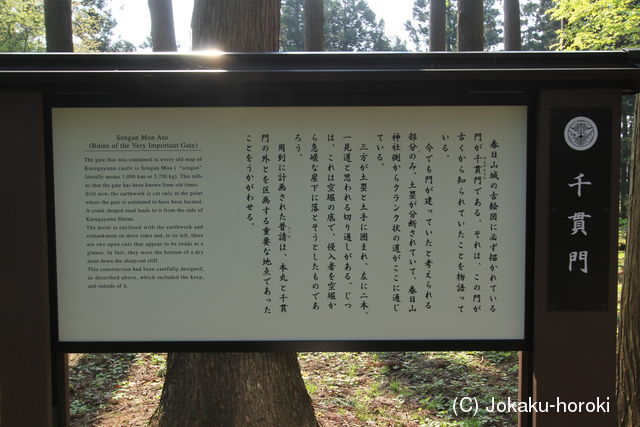 Sengan Mon Ato
(Ruins of the Very Important Gate)
The gate that was contained in every old map of
Kasugayama castle is Sengan Mon ( "sengan"
literally means 1,000 kan or 3,750 kg). This tells
us that the gate has been known from old times.
Still now, the earthwork is cut only at the point
where the gate is estimated to have been located.
A crank shaped road leads to it from the side of
Kasugayama Shrine.
The point is enclosed with the earthwork and
embankment on three sides and, to its left, there
are two open cuts that appear to be roads at a
glance. In fact, they were the bottom of a dry
moat down the sharp-cut cliff.
This construction had been carefully designed,
as described above, which included the keep,
and outside of it.
春日山城の古絵図に必ず描かれている
門が千貫門である。それは、この門が
古くから知られていたことを物語って
いる。
今でも門が建っていたと考えられる
部分のみ、土塁が分断されていて、春日山
神社側からクランク状の道がここに通じ
ている。
三方が土塁と土手に囲まれ、左に二本、
一見道と思われる切り通しがある。じつ
は、これは空堀の底で、侵入者を空堀か
ら急峻な崖下に落とそうとしたものであ
ろう。
周到に計画された普請は、本丸と千貫
門の外とを区画する重要な地点であった
ことをうかがわせる。
千貫門
(C) Jokaku-horoki